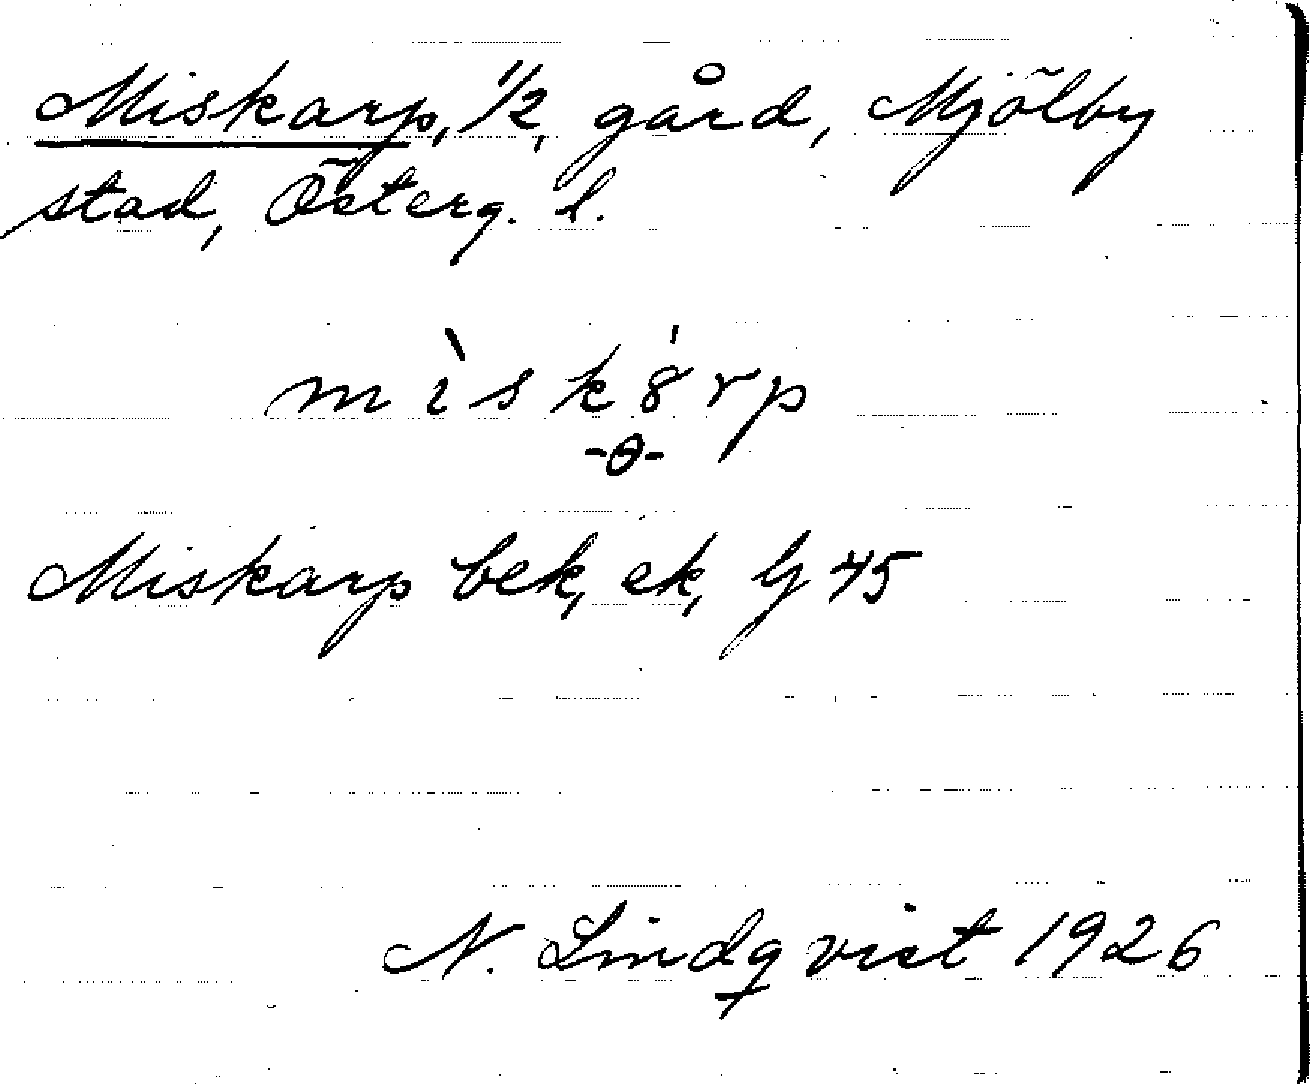 Miskarp, 1/2, gård, Mjölby
stad, Österg. l.
mìskȣ́rp
-θ-
Miskarp bek, ek, lj 45
N. Lindqvist 1926